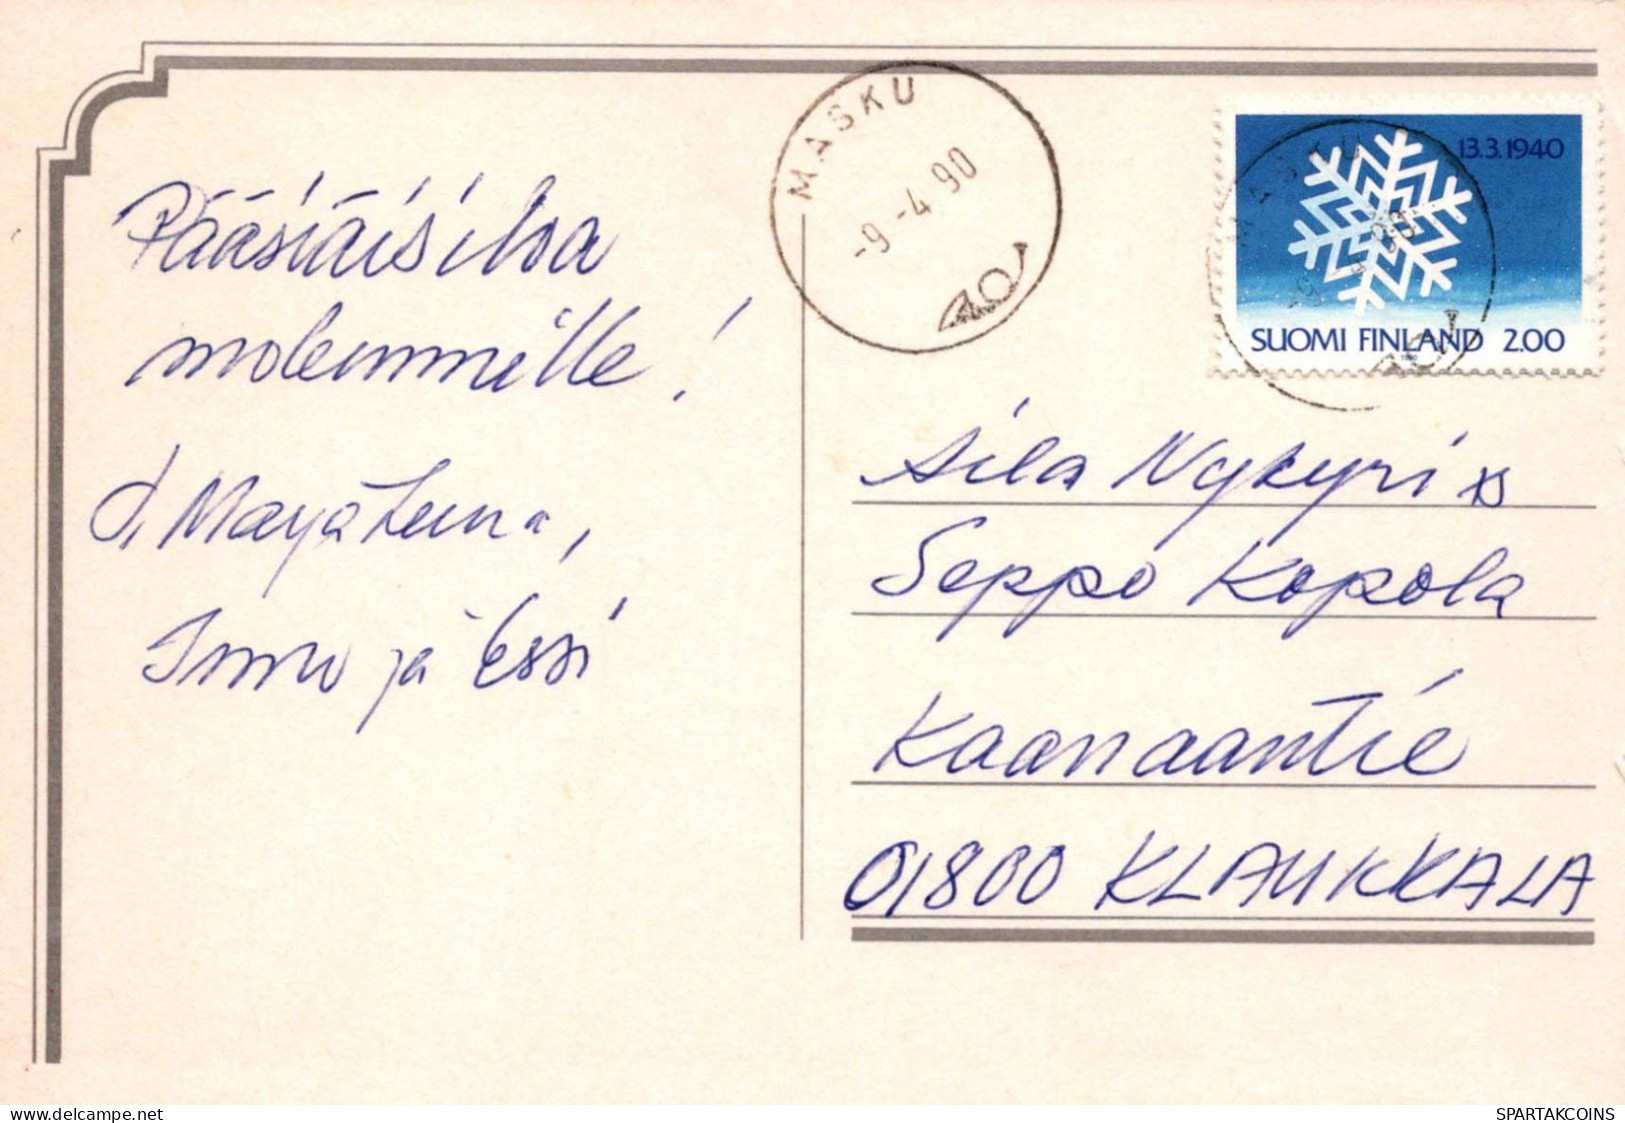 Pääsiäisiloa
molemmille!
T. Marja Leena,
Immo ja Essi
MASKU
-9.-4.90
13.3.1940
SUOMI FINLAND 2.00
Aila Nykyri ja
Seppo Kopola
Kaanaantie
01800 KLAUKKALA
delcampe.net
SPARTAKCOINS